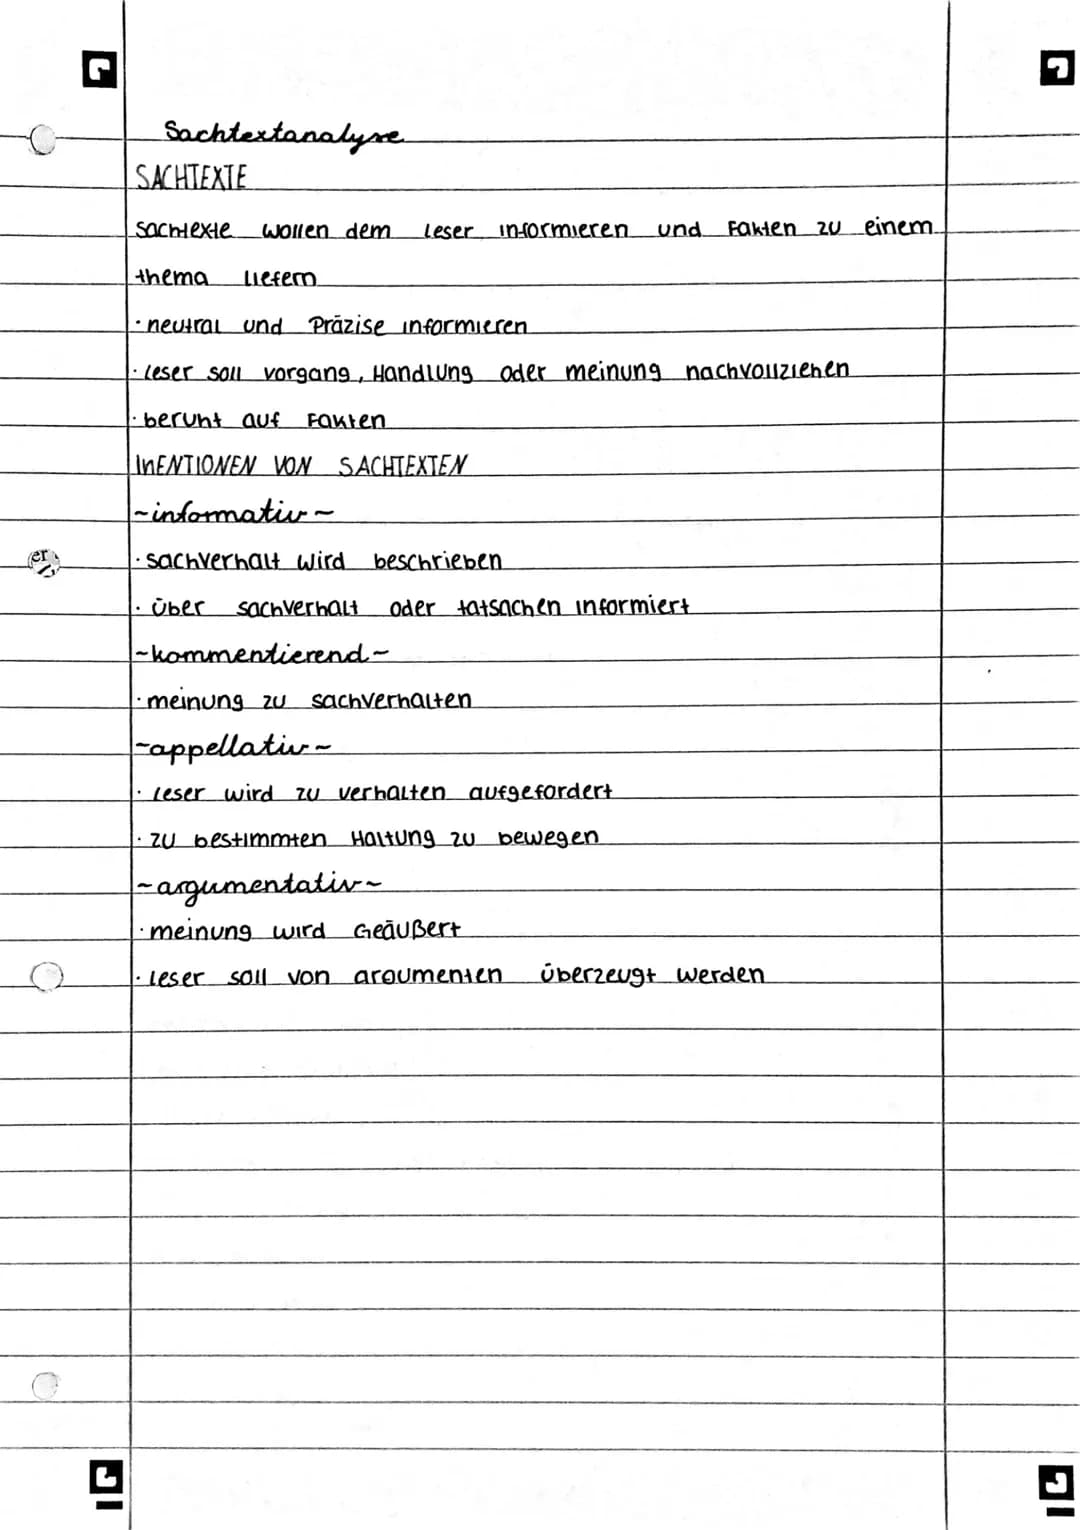 Sachtextanalyse
SACHTEXTE
Sachtexte wollen dem Leser informieren und Fakten zu einem
thema liefern
· neutral und Präzise informieren
· Leser soll vorgang, Handlung oder meinung nachvollziehen
· beruht auf Fakten
InENTIONEN VON SACHTEXTEN
~informativ~
· sachverhalt wird beschrieben
· über sachverhalt oder tatsachen informiert
~kommentierend~
· meinung zu sachverhalten
~appellativ~
· Leser wird zu verhalten aufgefordert
· zu bestimmten Haltung zu bewegen
~argumentativ~
· meinung wird Geäußert
· Leser soll von argumenten überzeugt werden
er